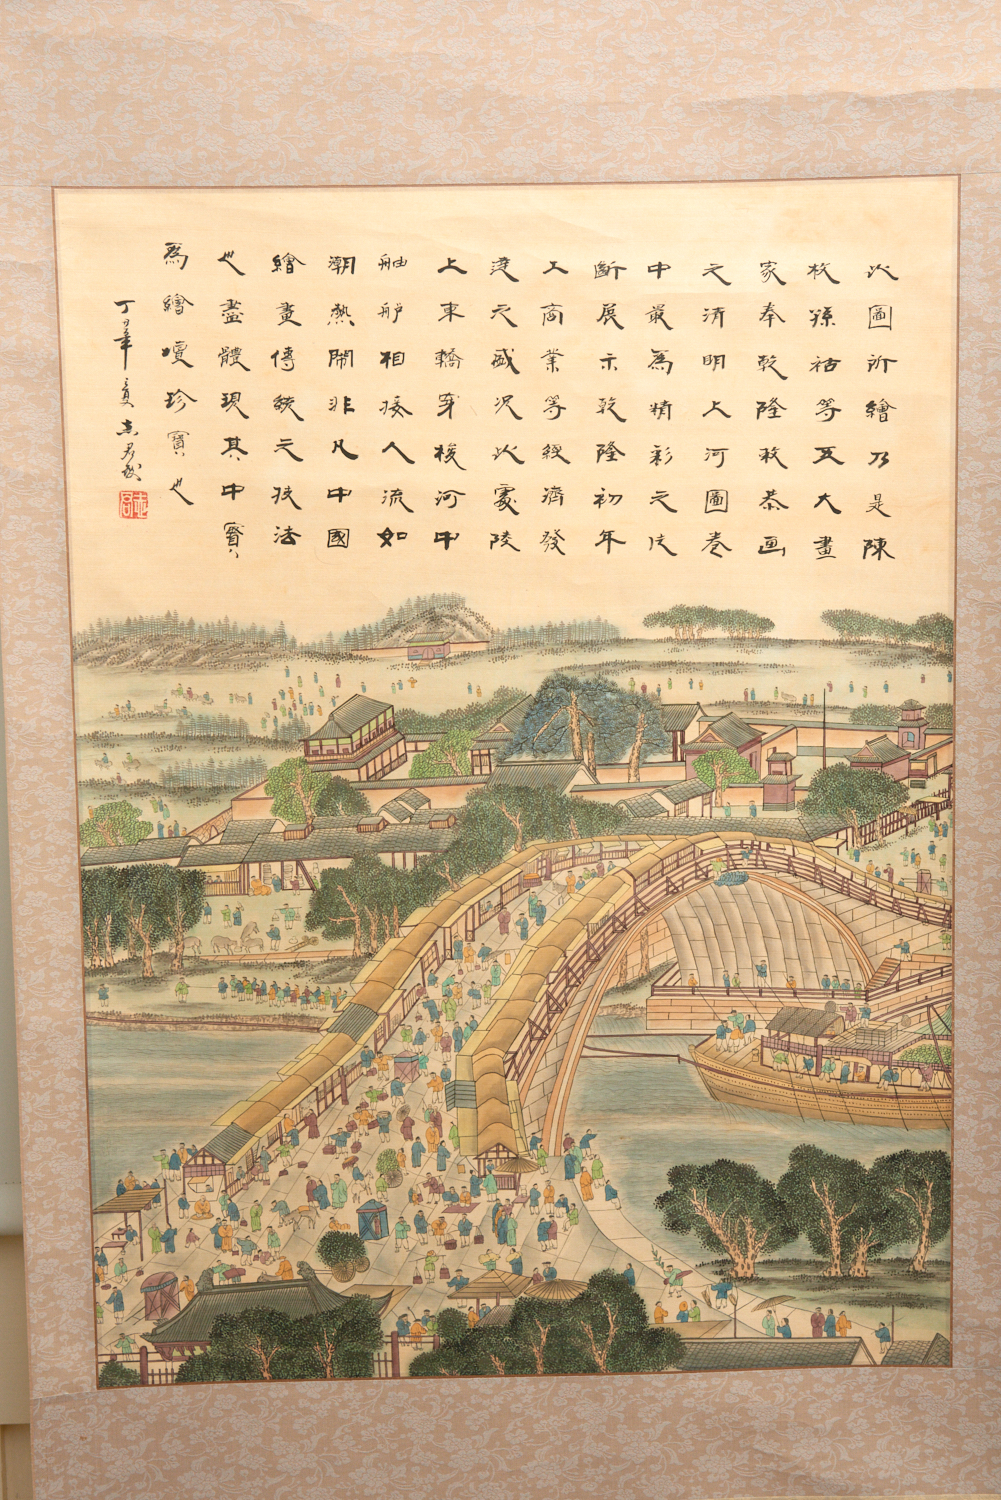 此圖所繪乃是陳
枚孫祜等五大畫
家奉乾隆敕恭画
之清明上河圖卷
中最為精彩之段
斷展示乾隆初年
工商業等經濟發
達之盛况此處陵
上車轎穿梭河中
舳舻相接人流如
潮熱鬧非凡中國
繪畫傳統之技法
也盡體現其中實
為繪壇珍寶也
丁丑年夏志君